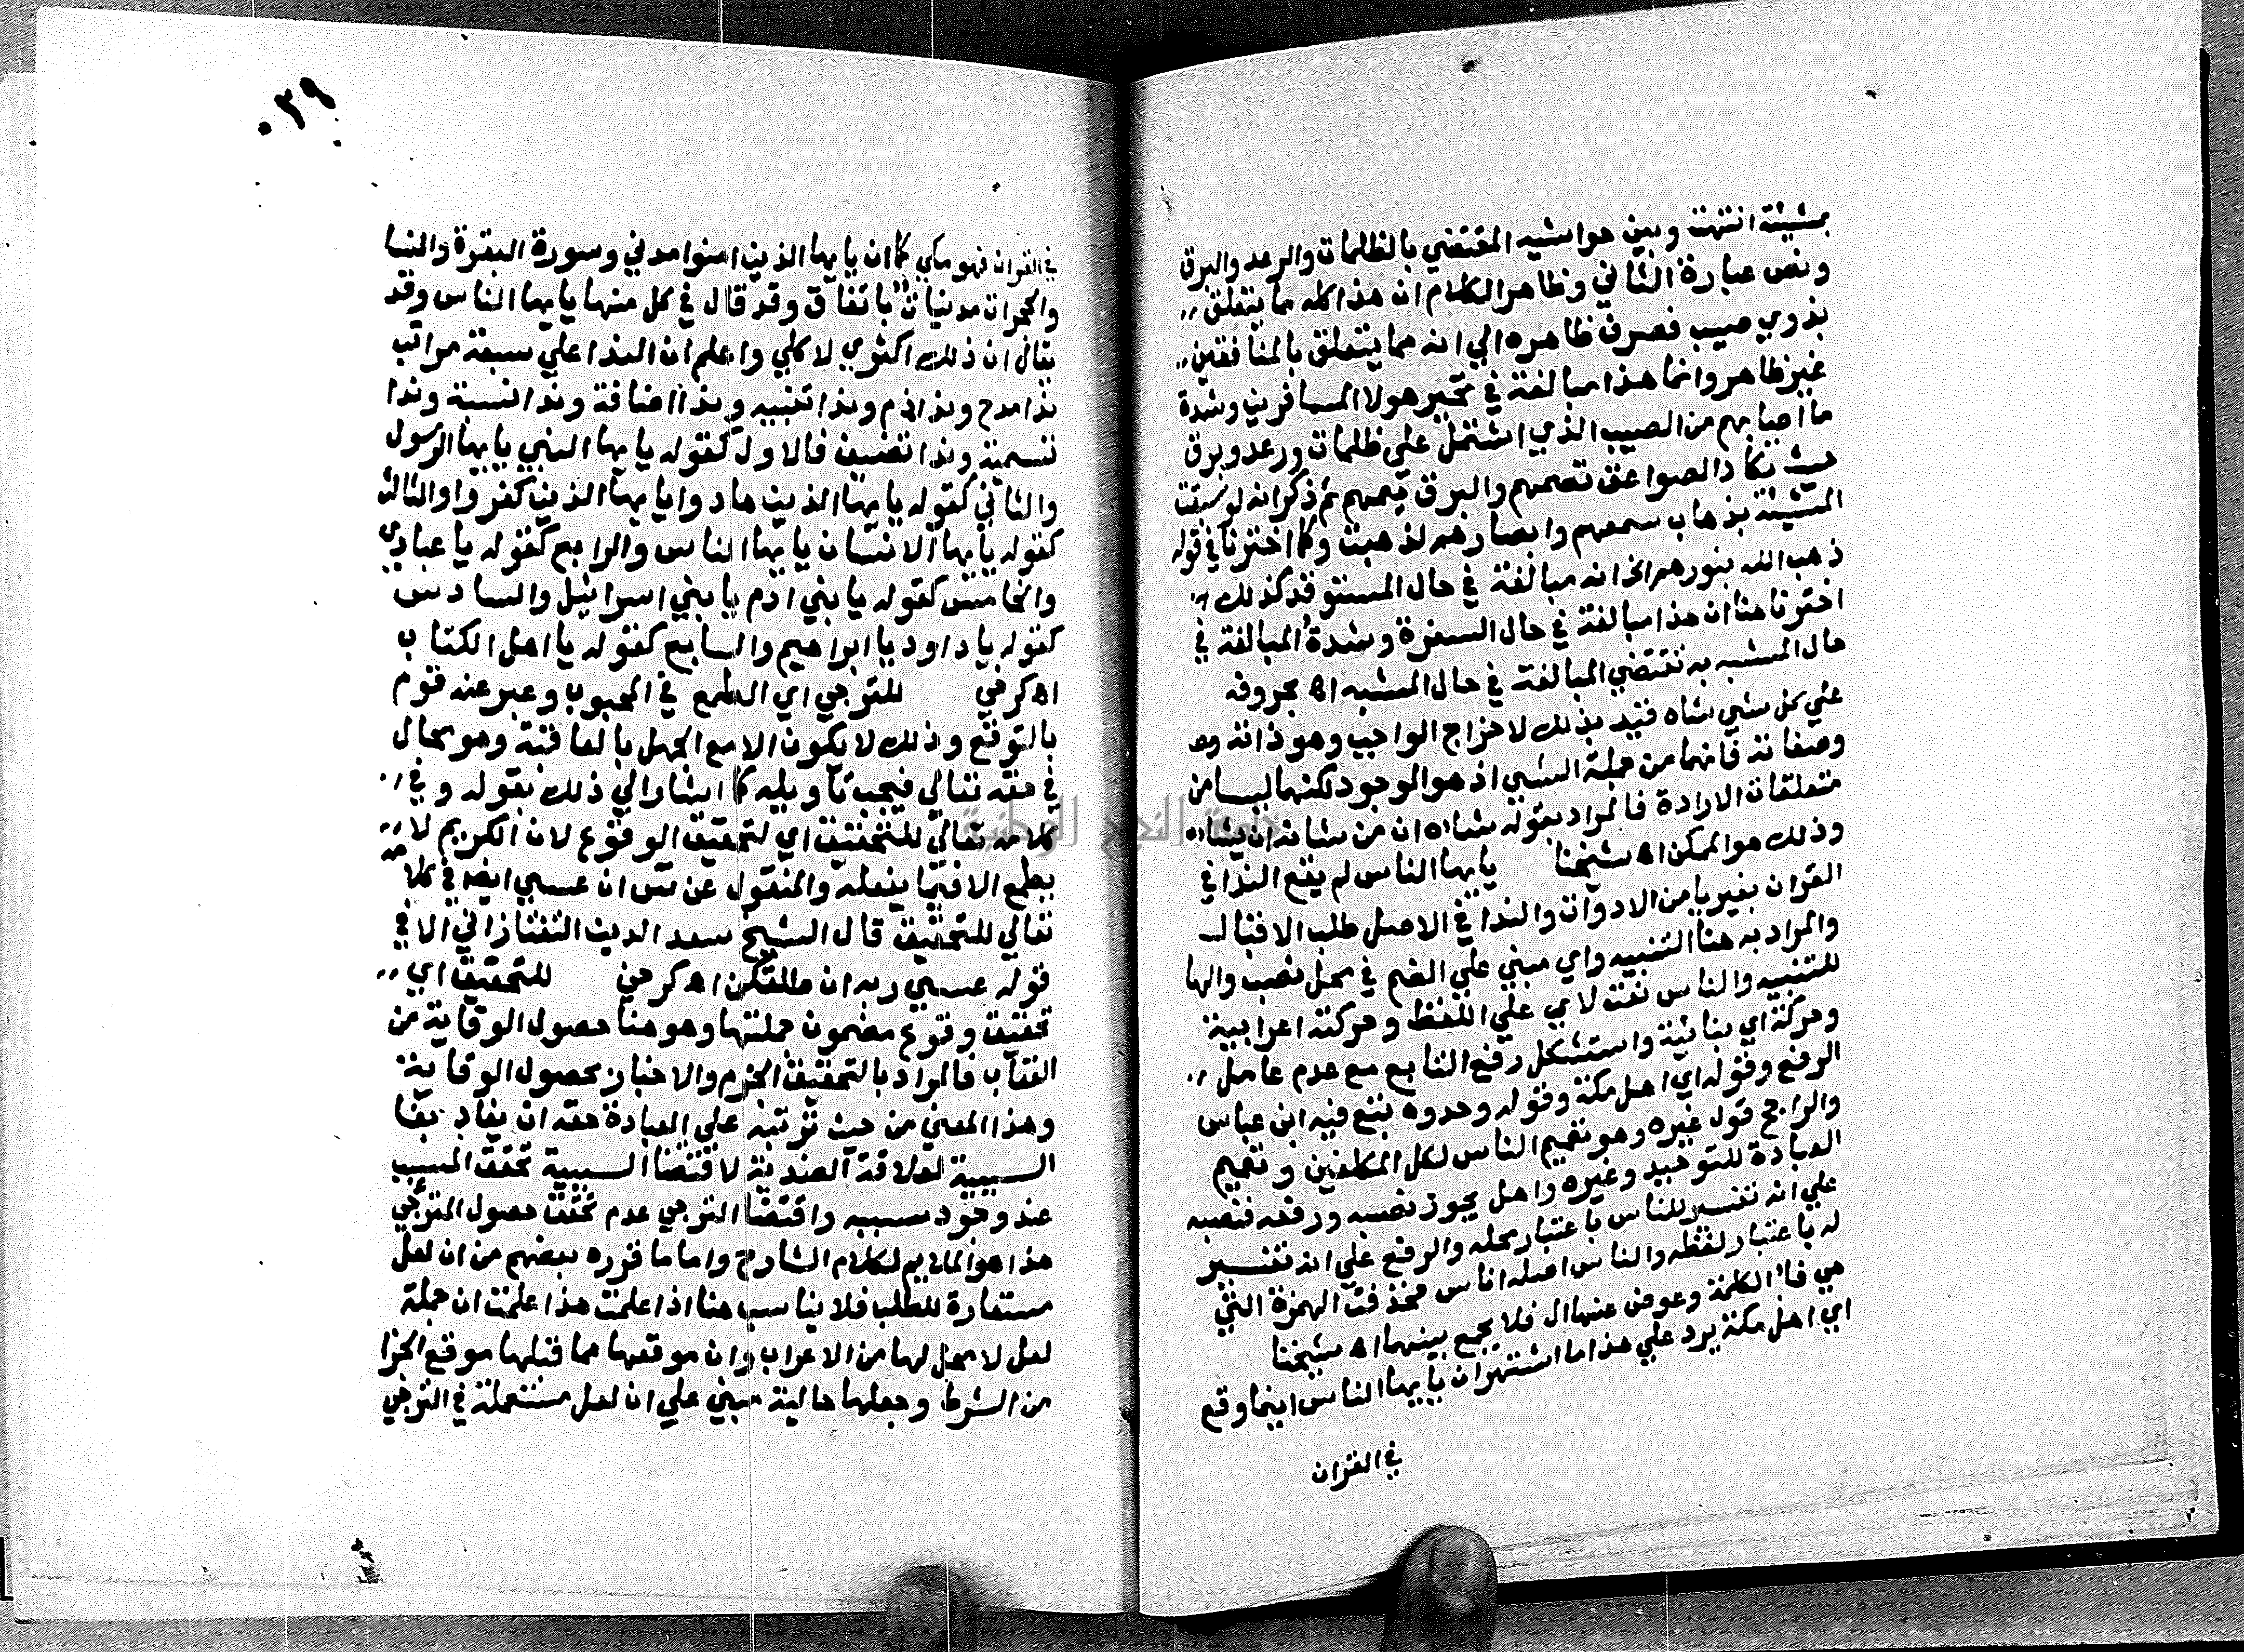 بمشيئة انتهت وبين حواشيه المقتضي بالظلمات والرعد والبرق
ونص عبارة الثاني وظاهر الكلام ان هذا كله مما يتعلق
بذوي صيب فصرف ظاهره الي انه مما يتعلق بالمنافقين
غير ظاهر وانما هذا مبالغة في تحير هولا المسافرين وشدة
ما اصابهم من الصيب الذي اشتمل علي ظلمات ورعد وبرق
حيث تكاد الصواعق تصمهم والبرق يعميهم ثم ذكر انه لو سبقت
المشيئة بذهاب سمعهم وابصارهم لذهبت وكما اخترنا في قوله
ذهب الله بنورهم الخ انه مبالغة في حال المستوقد كذلك
اخترنا هنا ان هذا مبالغة في حال السفرة وشدة المبالغة في
حال المشبه به تقتضي المبالغة في حال المشبه اه بحروفه
علي كل شي شاه قيد بذلك لاخراج الواجب وهو ذاته وص
وصفاته فانهما من جملة الشي اذ هو الموجود لكنهما ليسا من
متعلقات الارادة فالمراد بقوله شاه ان من شانه ان يشاه
وذلك هو الممكن اه شيخنا يايها الناس لم يقع الندا في
القران بغير يا من الادوات والندا في الاصل طلب الاقبال
والمراد به هنا التنبيه واي مبني علي الضم في محل نصب والها
للتنبيه والناس نعت لاي علي اللفظ وحركته اعرابية
وحركة اي بنائية واستشكل رفع التابع مع عدم عامل
الرفع وقوله اي اهل مكة وقوله وحدوه تبع فيه ابن عباس
والراجح قول غيره وهو تعميم الناس لكل المكلفين وتعميم
العبادة للتوحيد وغيره واهل يجوز نصبه ورفعه فنصبه
علي انه تفسير للناس باعتبار محله والرفع علي انه تفسير
له باعتبار لفظه والناس اصله اناس فحذفت الهمزة التي
هي فا الكلمة وعوض عنها ال فلا يجمع بينهما اه شيخنا
اي اهل مكة يرد علي هذا ما اشتهر ان يايها الناس اينما وقع
في القران
٠٣٩
في القران فهو مكي كما ان يايها الذين امنوا مدني وسورة البقرة والنسا
والحجرات مدنيات باتفاق وقد قال في كل منها يايها الناس وقد
يقال ان ذلك اكثري لا كلي واعلم ان الندا علي سبعة مراتب
ندا مدح وندا ذم وندا تنبيه وندا اضافة وندا نسبة وندا
تسمية وندا تضيف فالاول كقوله يايها النبي يايها الرسول
والثاني كقوله يايها الذين هادوا يايها الذين كفروا والثالث
كقوله يايها الانسان يايها الناس والرابع كقوله يا عبادي
والخامس كقوله يا بني ادم يا بني اسرائيل والسادس
كقوله يا داود يا ابراهيم والسابع كقوله يا اهل الكتاب
اه كرخي للترجي اي الطمع في المحبوب وعبر عنه قوم
بالتوقع وذلك لا يكون الا مع الجهل بالعاقبة وهو محال
في حقه تعالي فيجب تاويله كما اشار الي ذلك بقوله وفي
كلامه تعالي للتحقيق اي لتحقيق الوقوع لان الكريم لا
يطمع الا فيما يفعله والمنقول عن س ان عسي ايضا في كلامه
تعالي للتحقيق قال الشيخ سعد الدين التفتازاني الا في
قوله عسي ربه ان طلقكن اه كرخي للتحقيق اي
تحقيق وقوع مضمون جملتها وهو هنا حصول الوقاية من
العقاب فالمراد بالتحقيق الجزم والاخبار بحصول الوقاية
وهذا المعني من حيث ترتبه علي العبادة حقه ان يفاد بفا
السببية لعلاقة الضدية لاقتضا السببية تحقق المسبب
عند وجود سببه واقتضا الترجي عدم تحقق حصول المترجي
هذا هو الملايم لكلام الشارح واما ما قرره بعضهم من ان لعل
مستعارة للطلب فلا يناسب هنا اذا علمت هذا علمت ان جملة
لعل لا محل لها من الاعراب وان موقعها مما قبلها موقع الجزا
من الشرط وجعلها حالية مبني علي ان لعل مستعملة في الترجي
جامعة النجاح الوطنية